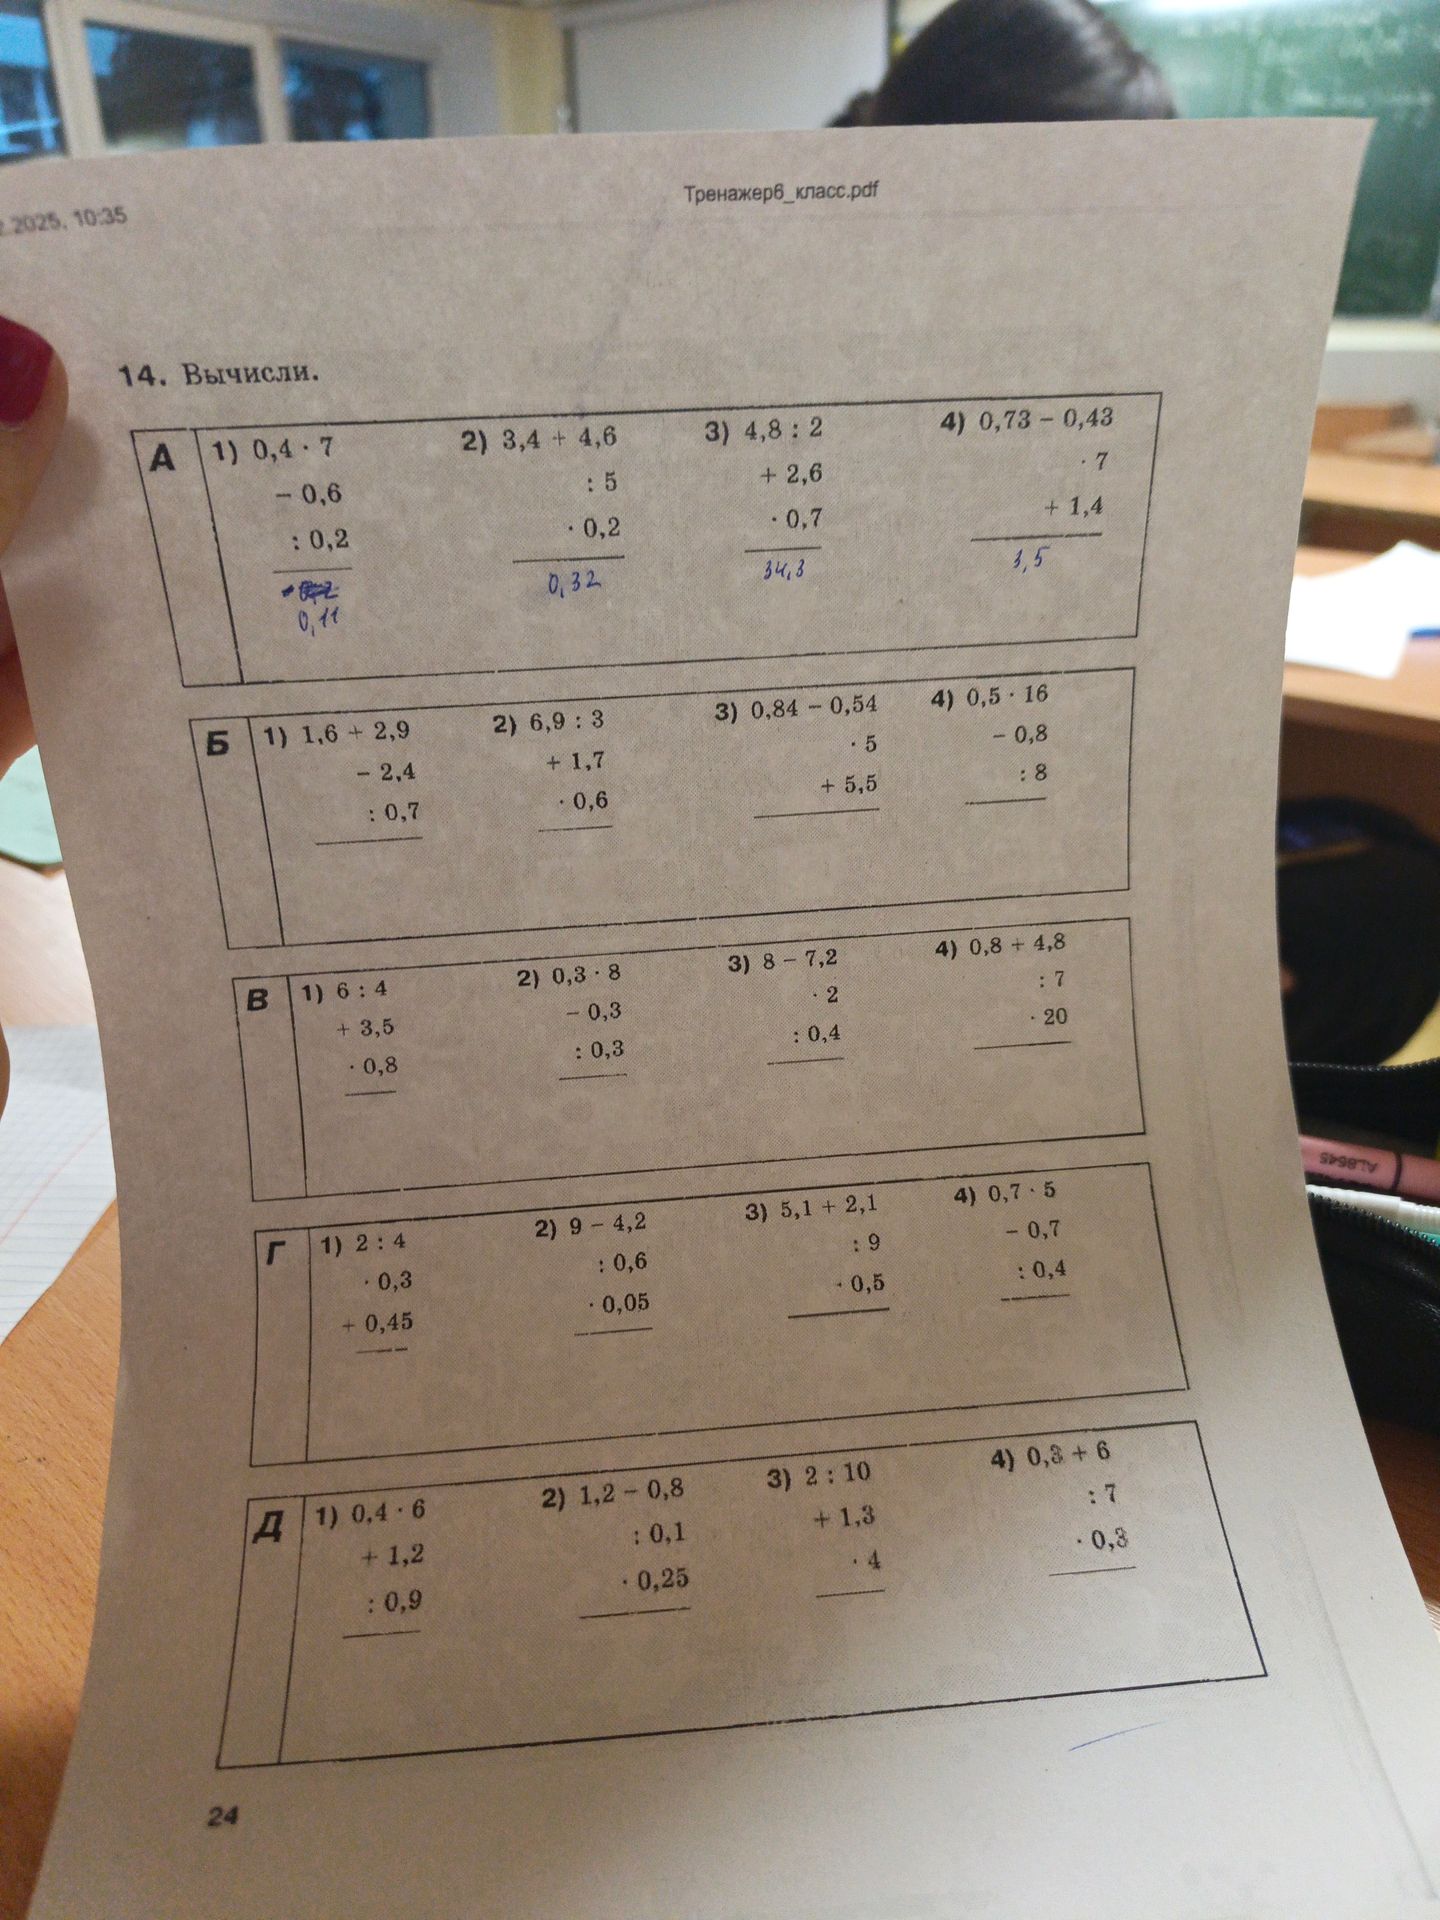 2.2025, 10:35
Тренажер6_класс.pdf
14. Вычисли.
А
1) 0,4 · 7
− 0,6
: 0,2
0,11
2) 3,4 + 4,6
: 5
· 0,2
0,32
3) 4,8 : 2
+ 2,6
· 0,7
34,3
4) 0,73 − 0,43
· 7
+ 1,4
3,5
Б
1) 1,6 + 2,9
− 2,4
: 0,7
2) 6,9 : 3
+ 1,7
· 0,6
3) 0,84 − 0,54
· 5
+ 5,5
4) 0,5 · 16
− 0,8
: 8
В
1) 6 : 4
+ 3,5
· 0,8
2) 0,3 · 8
− 0,3
: 0,3
3) 8 − 7,2
· 2
: 0,4
4) 0,8 + 4,8
: 7
· 20
Г
1) 2 : 4
· 0,3
+ 0,45
2) 9 − 4,2
: 0,6
· 0,05
3) 5,1 + 2,1
: 9
· 0,5
4) 0,7 · 5
− 0,7
: 0,4
Д
1) 0,4 · 6
+ 1,2
: 0,9
2) 1,2 − 0,8
: 0,1
· 0,25
3) 2 : 10
+ 1,3
· 4
4) 0,3 + 6
: 7
· 0,3
24
AL8645